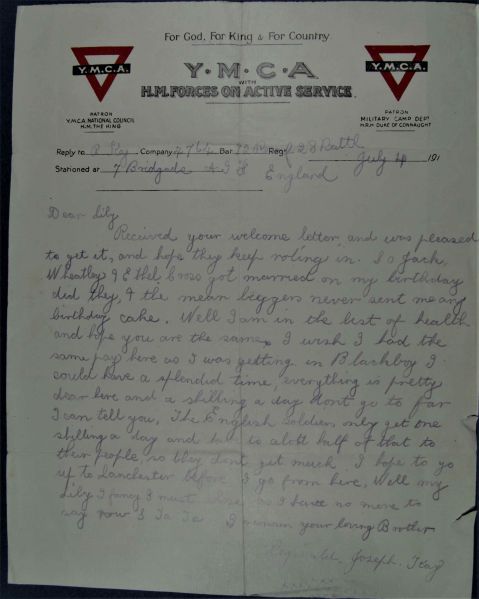 For God, For King & For Country.
Y.M.C.A.
Y.M.C.A
Y.M.C.A.
WITH
H.M. FORCES ON ACTIVE SERVICE.
PATRON
Y.M.C.A. NATIONAL COUNCIL
H.M. THE KING
PATRON
MILITARY CAMP DEPT
H.R.H. DUKE OF CONNAUGHT
Reply to Company Bat Regt
July 4 191
Stationed at 7 Bridgade A I F England
Dear Lily
Received your welcome letter, and was pleased
to get it, and hope they keep roling in. So Jack
Wheatley & Ethel Cross got married on my birthday
did they, & the mean beggers never sent me any
birthday cake. Well I am in the best of health
and hope you are the same, I wish I had the
same pay here as I was getting in Blackboy I
could have a splendid time, everything is pretty
dear here and a shilling a day dont go to far
I can tell you, The English Soldiers only get one
shilling a day and half of that to
their people, so they dont get much I hope to go
up to Lanchester before I go from here, Well my
Lily I fancy I must close as I have no more to
say now & Ta Ta I remain your loving Brother
Joseph.